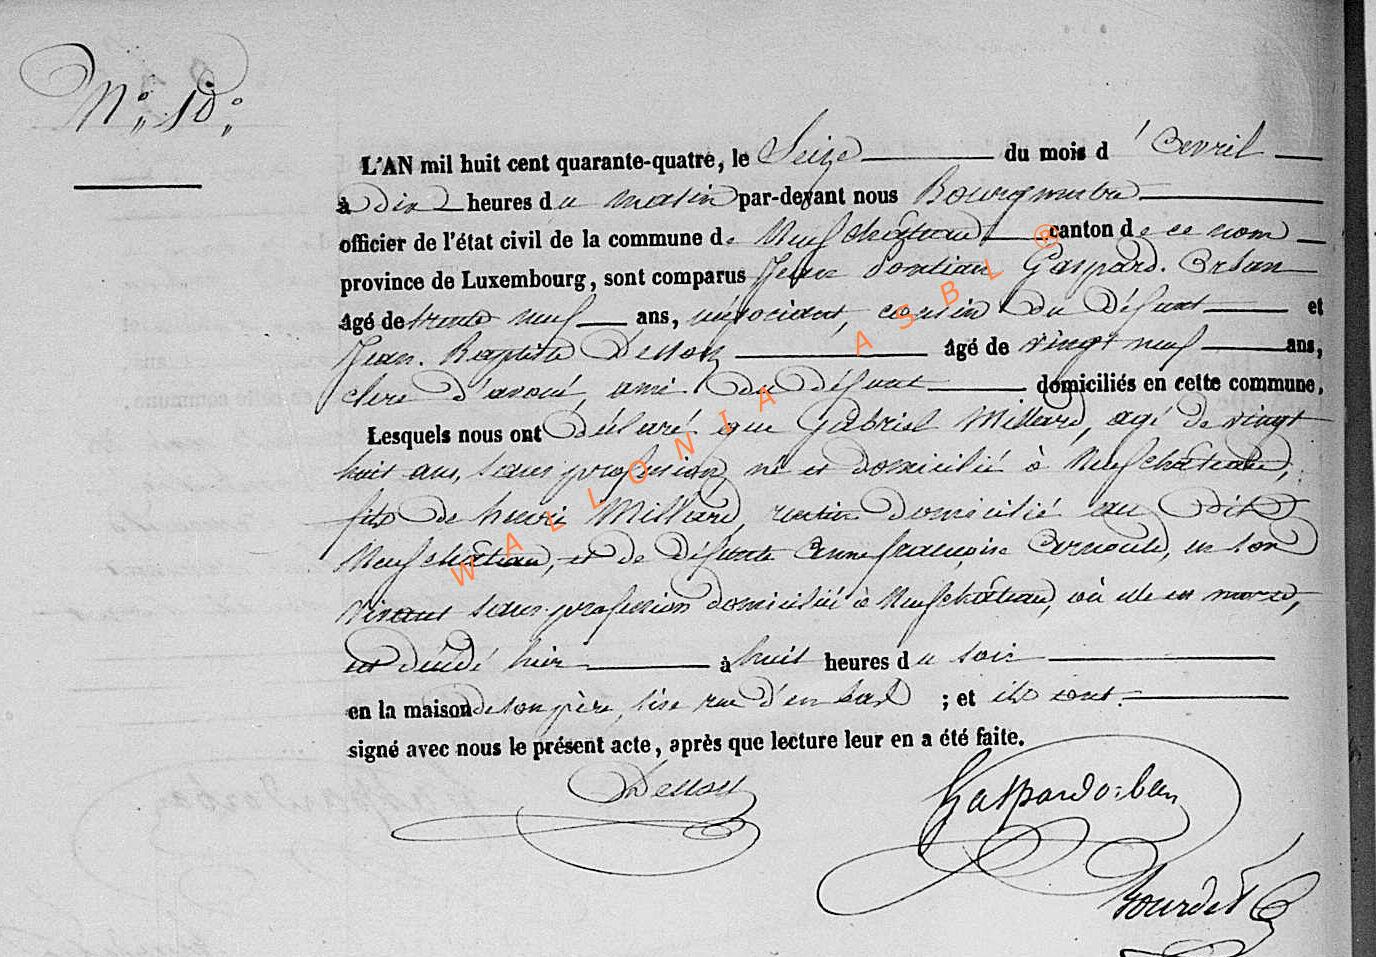 N° 10.
L'AN mil huit cent quarante-quatre, le Seize du mois d'Avril
à Dix heures du matin par-devant nous Bourgmestre
officier de l'état civil de la commune de Neufchâteau canton de ce nom
province de Luxembourg, sont comparus Jean Gaspard Orban
âgé de trente neuf ans, négociant, cousin du Défunt et
Jean Baptiste âgé de vingt neuf ans,
clerc d'avoué, ami du défunt domiciliés en cette commune,
Lesquels nous ont Déclaré que Gabriel Millard, agé de vingt
huit ans, sans profession, né et domicilié à Neufchâteau,
fils de henri Millard, rentier domicilié au Dit
Neufchâteau, et de Défunte Anne françoise Arnould, en son
vivant sans profession domiciliée à Neufchâteau, où elle est morte,
est décédé hier à huit heures du soir
en la maison de son père, sise rue d'en bas ; et ils ont
signé avec nous le présent acte, après que lecture leur en a été faite.
Gaspard orban
WALLONIA ASBL ®